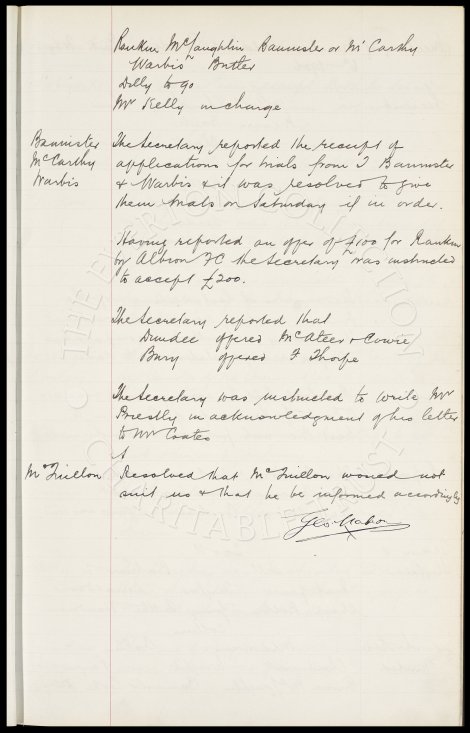 Rankin McLaughlin Bannister or McCarthy
Warbis Butler
Dilly to go
Mr Kelly in charge
Bannister
McCarthy
Warbis
The Secretary reported the receipt of
applications for trials from J Bannister
& Warbis & it was resolved to give
them trials on Saturday if in order.
Having reported an offer of £100 for Rankin
by Albion FC the Secretary was instructed
to accept £200.
The Secretary reported that
Dundee offered McAteer & Cowie
Bury offered F Thorpe
The Secretary was instructed to write Mr
Priestly in acknowledgment of his letter
to Mr Coates
McQuillon
Resolved that McQuillon would not
suit us & that he be informed accordingly
Geo Mahon
THE EVERTON COLLECTION
CHARITABLE TRUST